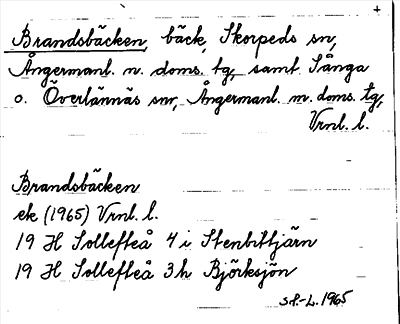 +
Brandsbäcken, bäck, Skorpeds sn,
Ångermanl. n. doms. tg, samt Sånga
o. Överlännäs snr, Ångermanl. m. doms. tg,
Vrnl. l.
Brandsbäcken
ek (1965) Vrnl. l.
19 H Sollefteå 4 i Stenbittjärn
19 H Sollefteå 3 h Björksjön
S.P.-L. 1965